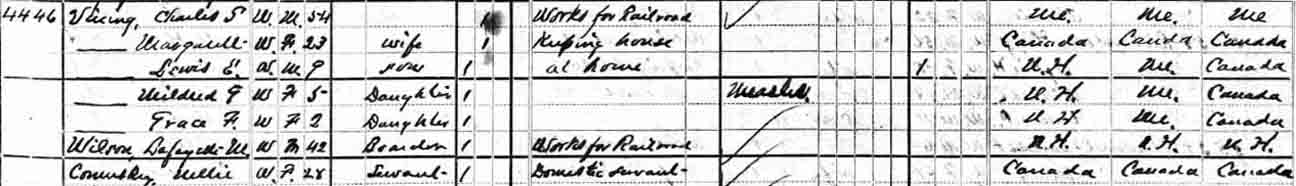 44 46 Vining, Charles S W. M. 54 1 Works for Railroad ✓ Me. Me. Me
—— Margarett W. F. 23 wife 1 Keeping house Canada Canda Canada
—— Lewis E. W. M 9 son 1 at home 1 N.H. Me. Canada
—— Mildred W F 5 Daughter 1 Measles N.H. Me. Canada
—— Grace F. W F 2 Daughter 1 N.H. Me. Canada
Wilson, Lafayette M W M 42 Boarder 1 Works for Railroad N.H. N.H. N.H.
Nellie W. F. 28 Servant 1 Domestic servant Canada Canada Canada